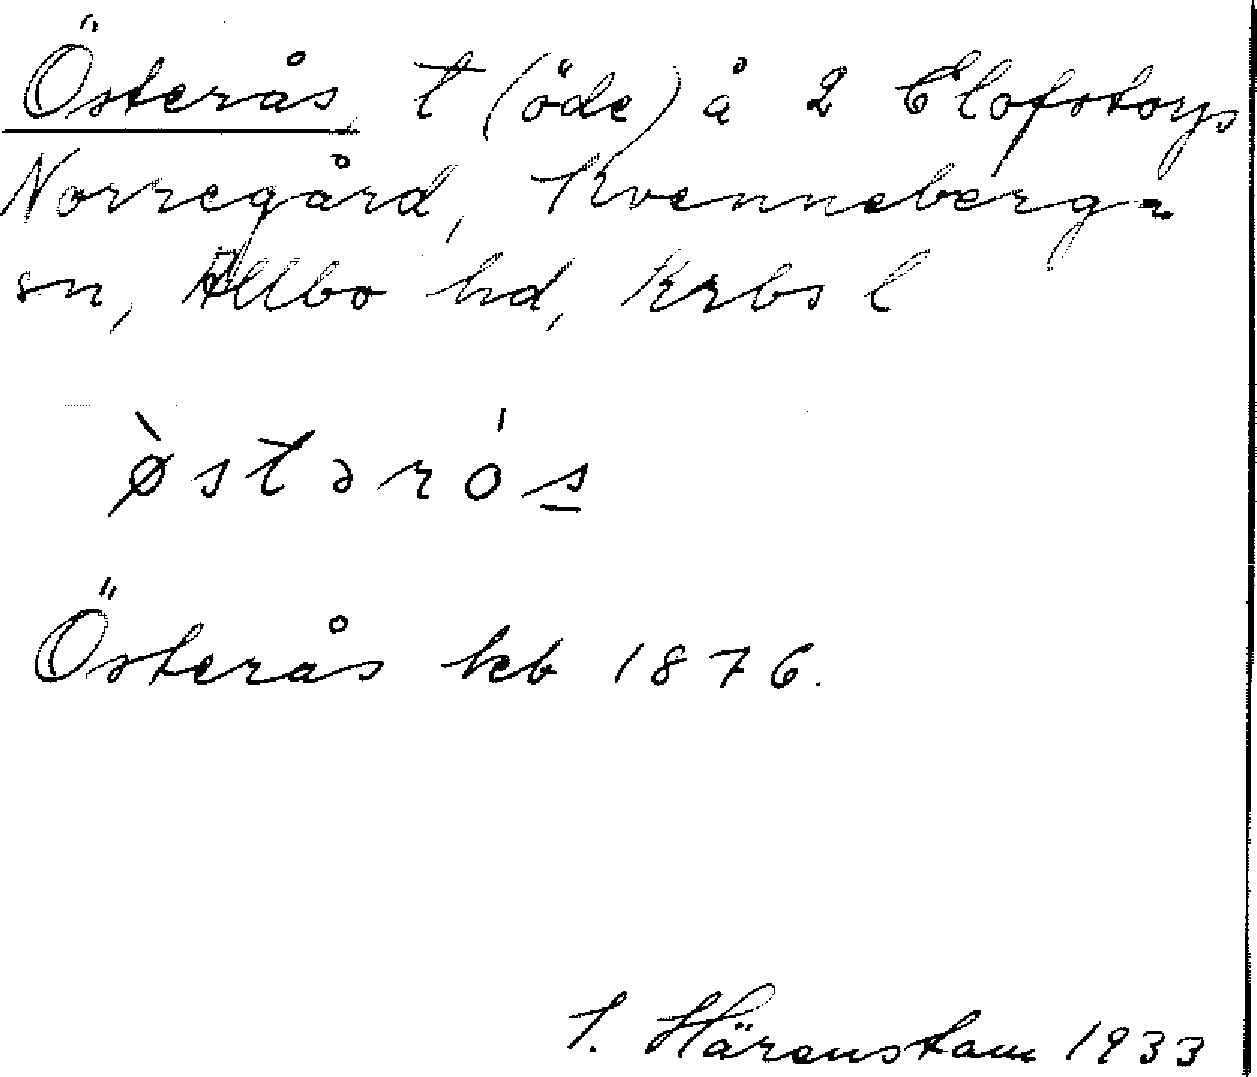 Österås, t (öde) å 2 Elofstorps
Norregård, Kvenneberga
sn, Allbo hd, Krbs l
ø̀stəró̱s
Österås kb 1876.
S. Härenstam 1933